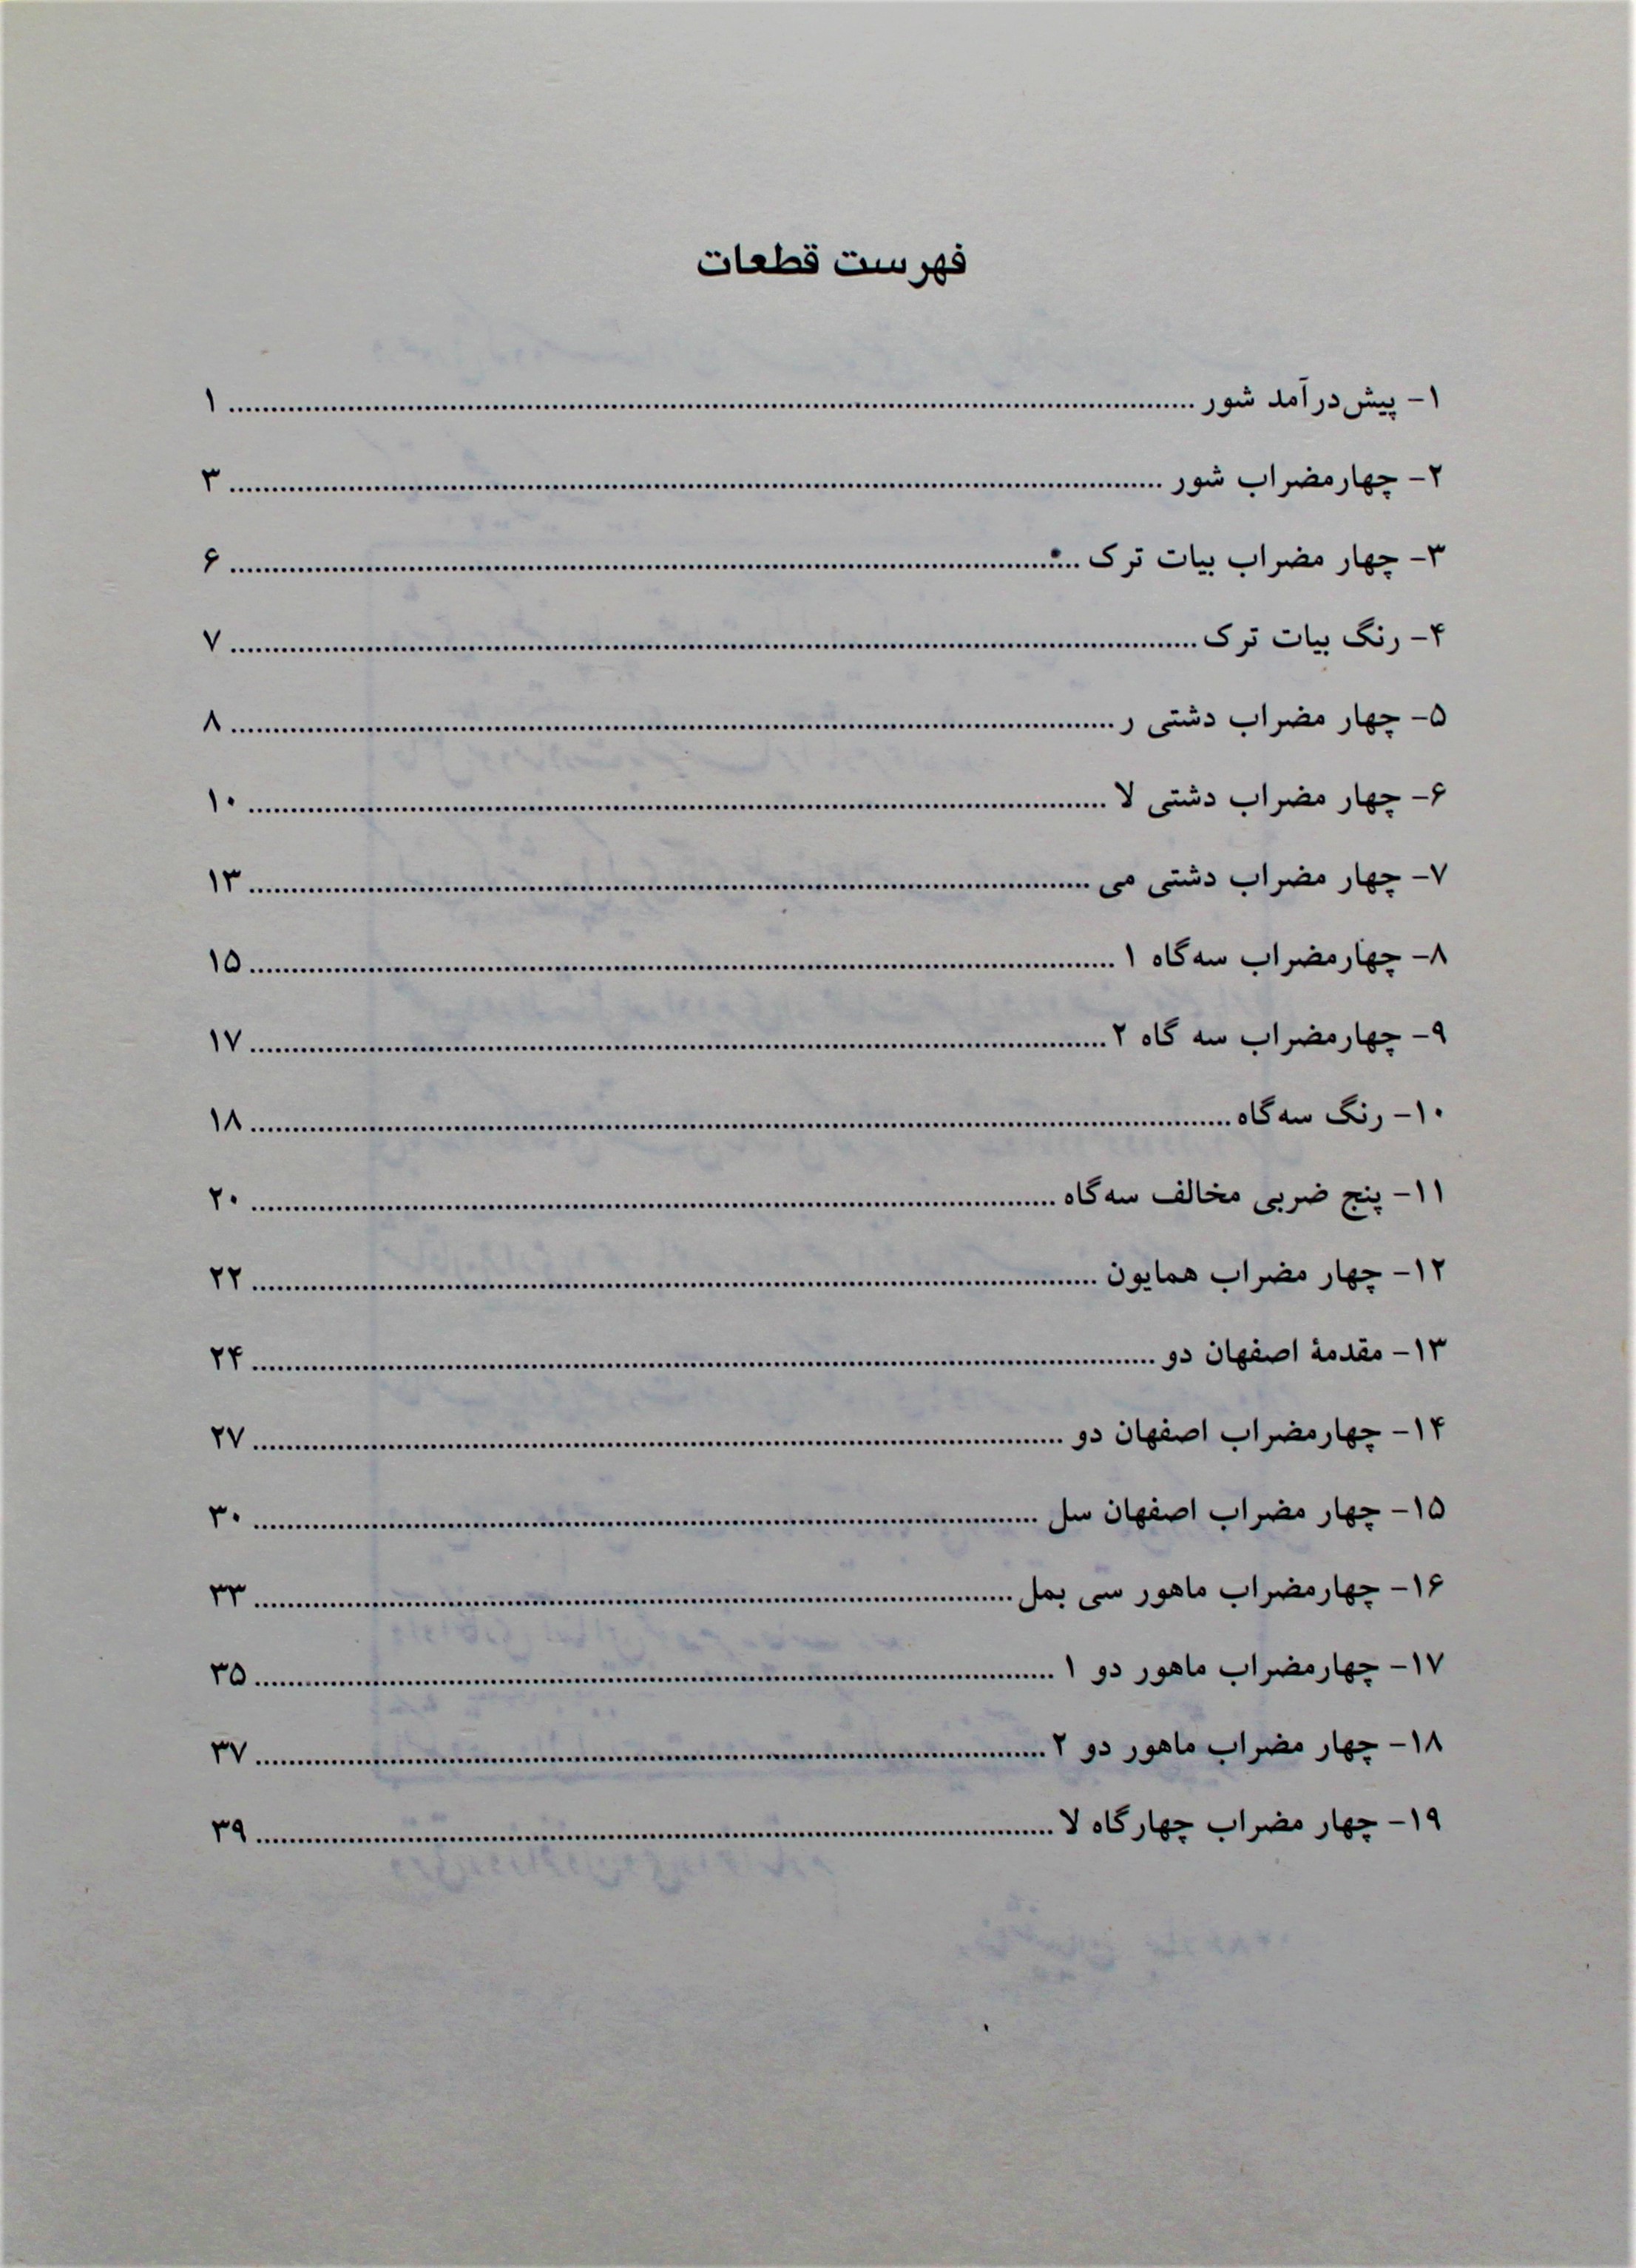 فهرست قطعات
۱- پیش‌درآمد شور ........ ۱
۲- چهارمضراب شور ........ ۳
۳- چهار مضراب بیات ترک ........ ۶
۴- رنگ بیات ترک ........ ۷
۵- چهار مضراب دشتی ر ........ ۸
۶- چهار مضراب دشتی لا ........ ۱۰
۷- چهار مضراب دشتی می ........ ۱۳
۸- چهارمضراب سه‌گاه ۱ ........ ۱۵
۹- چهارمضراب سه گاه ۲ ........ ۱۷
۱۰- رنگ سه‌گاه ........ ۱۸
۱۱- پنج ضربی مخالف سه‌گاه ........ ۲۰
۱۲- چهار مضراب همایون ........ ۲۲
۱۳- مقدمهٔ اصفهان دو ........ ۲۴
۱۴- چهارمضراب اصفهان دو ........ ۲۷
۱۵- چهار مضراب اصفهان سل ........ ۳۰
۱۶- چهارمضراب ماهور سی بمل ........ ۳۳
۱۷- چهارمضراب ماهور دو ۱ ........ ۳۵
۱۸- چهار مضراب ماهور دو ۲ ........ ۳۷
۱۹- چهار مضراب چهارگاه لا ........ ۳۹